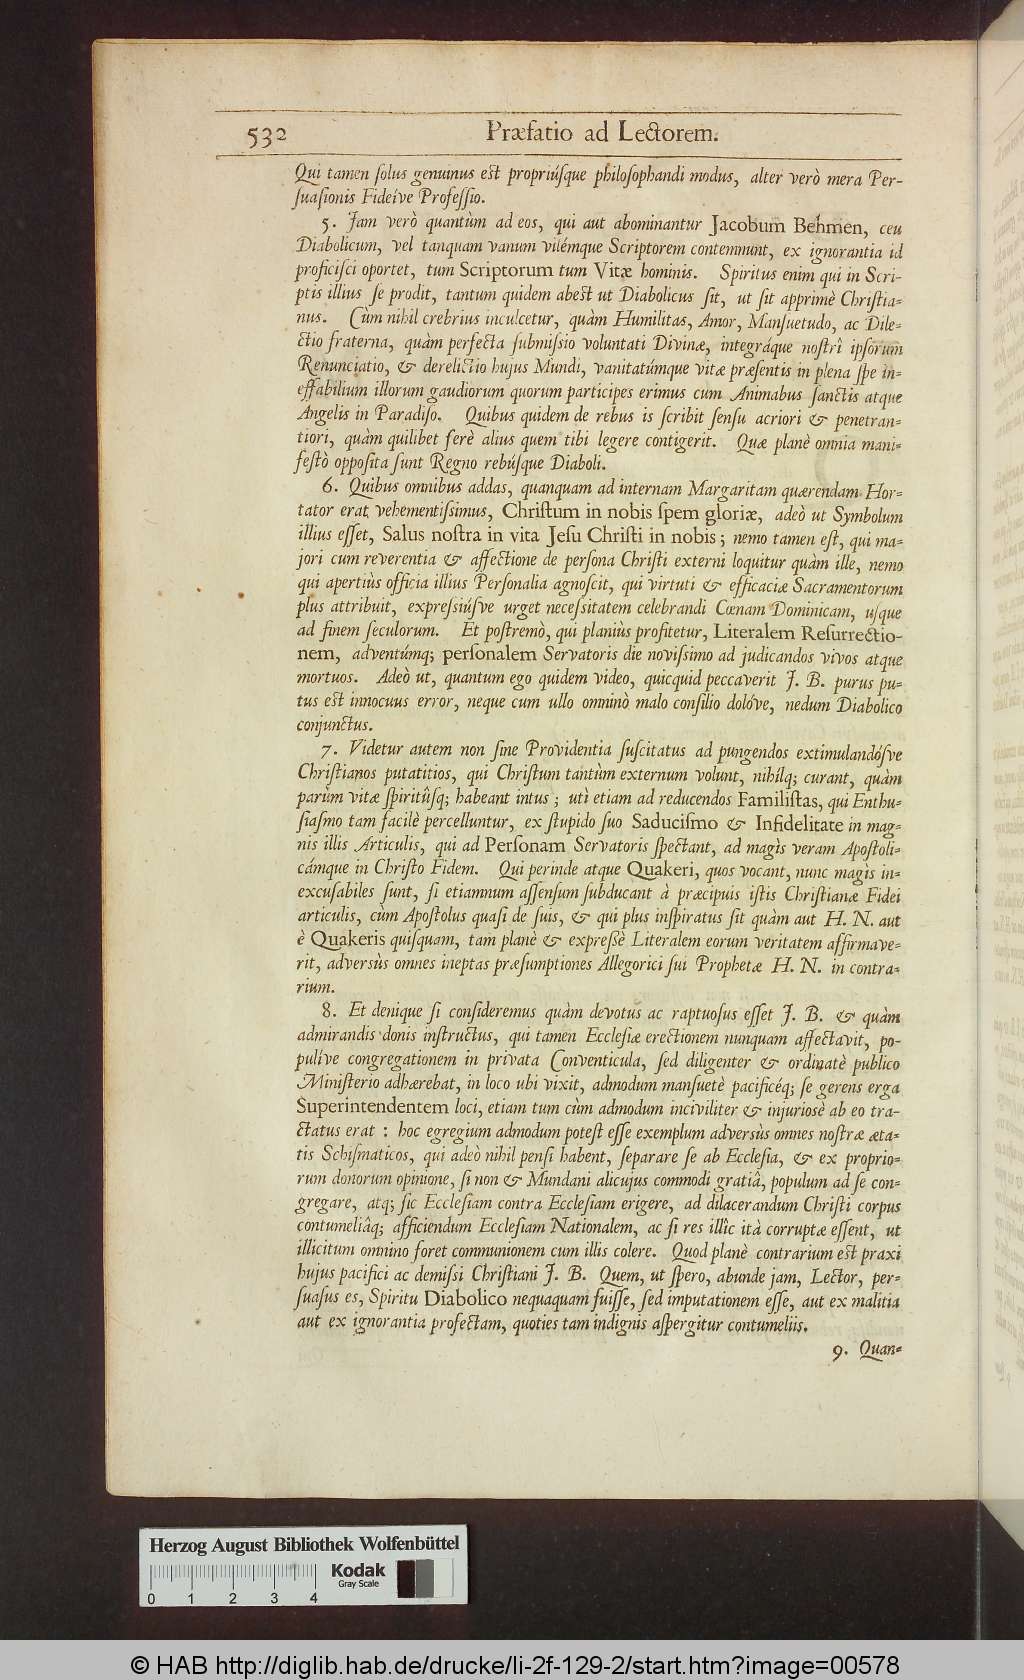 532 Præfatio ad Lectorem.
Qui tamen ſolus genuinus est propriúſque philoſophandi modus, alter verò mera Per-
ſuaſionis Fideíve Profeſſio.
5. Jam verò quantùm ad eos, qui aut abominantur Jacobum Behmen, ceu
Diabolicum, vel tanquam vanum vilémque Scriptorem contemnunt, ex ignorantia id
proficiſci oportet, tum Scriptorum tum Vitæ hominis. Spiritus enim qui in Scri-
ptis illius ſe prodit, tantum quidem abest ut Diabolicus ſit, ut ſit apprimè Chriſtia-
nus. Cùm nihil crebrius inculcetur, quàm Humilitas, Amor, Manſuetudo, ac Dile-
ctio fraterna, quàm perfecta ſubmiſsio voluntati Divinæ, integráque noſtrî ipſorum
Renunciatio, & derelictio hujus Mundi, vanitatúmque vitæ præſentis in plena ſpe in-
effabilium illorum gaudiorum quorum participes erimus cum Animabus ſanctis atque
Angelis in Paradiſo. Quibus quidem de rebus is ſcribit ſenſu acriori & penetran-
tiori, quàm quilibet ferè alius quem tibi legere contigerit. Quæ planè omnia mani-
feſtò oppoſita ſunt Regno rebúſque Diaboli.
6. Quibus omnibus addas, quanquam ad internam Margaritam quærendam Hor-
tator erat vehementiſsimus, Chriſtum in nobis ſpem gloriæ, adeò ut Symbolum
illius eſſet, Salus noſtra in vita Jeſu Chriſti in nobis; nemo tamen eſt, qui ma-
jori cum reverentia & affectione de perſona Chriſti externi loquitur quàm ille, nemo
qui apertiùs officia illius Perſonalia agnoſcit, qui virtuti & efficaciæ Sacramentorum
plus attribuit, expreſsiúſve urget neceſsitatem celebrandi Cœnam Dominicam, uſque
ad finem ſeculorum. Et poſtremò, qui planiùs profitetur, Literalem Reſurrectio-
nem, adventúmq; perſonalem Servatoris die noviſsimo ad judicandos vivos atque
mortuos. Adeò ut, quantum ego quidem video, quicquid peccaverit J. B. purus pu-
tus est innocuus error, neque cum ullo omninò malo conſilio dolóve, nedum Diabolico
conjunctus.
7. Videtur autem non ſine Providentia ſuſcitatus ad pungendos extimulandóſve
Chriſtianos putatitios, qui Chriſtum tantùm externum volunt, nihilq; curant, quàm
parùm vitæ ſpiritûſq; habeant intus; utì etiam ad reducendos Familiſtas, qui Enthu-
ſiaſmo tam facilè percelluntur, ex ſtupido ſuo Saduciſmo & Infidelitate in mag-
nis illis Articulis, qui ad Perſonam Servatoris ſpectant, ad magìs veram Apoſtoli-
cámque in Chriſto Fidem. Qui perinde atque Quakeri, quos vocant, nunc magìs in-
excuſabiles ſunt, ſi etiamnum aſſenſum ſubducant à præcipuis iſtis Chriſtianæ Fidei
articulis, cùm Apoſtolus quaſi de ſuis, & qui plus inſpiratus ſit quàm aut H. N. aut
è Quakeris quiſquam, tam planè & expreßè Literalem eorum veritatem affirmave-
rit, adversùs omnes ineptas præſumptiones Allegorici ſui Prophetæ H. N. in contra-
rium.
8. Et denique ſi conſideremus quàm devotus ac raptuoſus eſſet J. B. & quàm
admirandis donis inſtructus, qui tamen Eccleſiæ erectionem nunquam affectavit, po-
pulíve congregationem in privata Conventicula, ſed diligenter & ordinatè publico
Miniſterio adhærebat, in loco ubi vixit, admodum manſuetè pacificéq; ſe gerens erga
Superintendentem loci, etiam tum cùm admodum inciviliter & injuriosè ab eo tra-
ctatus erat : hoc egregium admodum poteſt eſſe exemplum adversùs omnes noſtræ æta-
tis Schiſmaticos, qui adeò nihil penſi habent, ſeparare ſe ab Eccleſia, & ex proprio-
rum donorum opinione, ſi non & Mundani alicujus commodi gratiâ, populum ad ſe con-
gregare, atq; ſic Eccleſiam contra Eccleſiam erigere, ad dilacerandum Chriſti corpus
contumeliâq; afficiendum Eccleſiam Nationalem, ac ſi res illîc ità corruptæ eſſent, ut
illicitum omnino foret communionem cum illis colere. Quod planè contrarium est praxi
hujus pacifici ac demiſsi Chriſtiani J. B. Quem, ut ſpero, abunde jam, Lector, per-
ſuaſus es, Spiritu Diabolico nequaquam fuiſſe, ſed imputationem eſſe, aut ex malitia
aut ex ignorantia profectam, quoties tam indignis aſpergitur contumeliis.
9. Quan-
Herzog August Bibliothek Wolfenbüttel
Kodak
Gray Scale
0 1 2 3 4
© HAB http://diglib.hab.de/drucke/li-2f-129-2/start.htm?image=00578